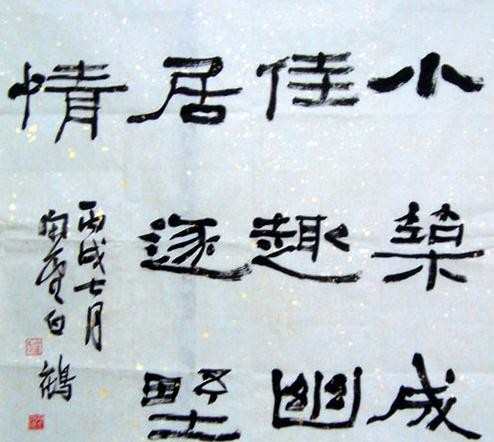 小築成
佳趣幽
居逐野
情
丙戌七月
白鶴